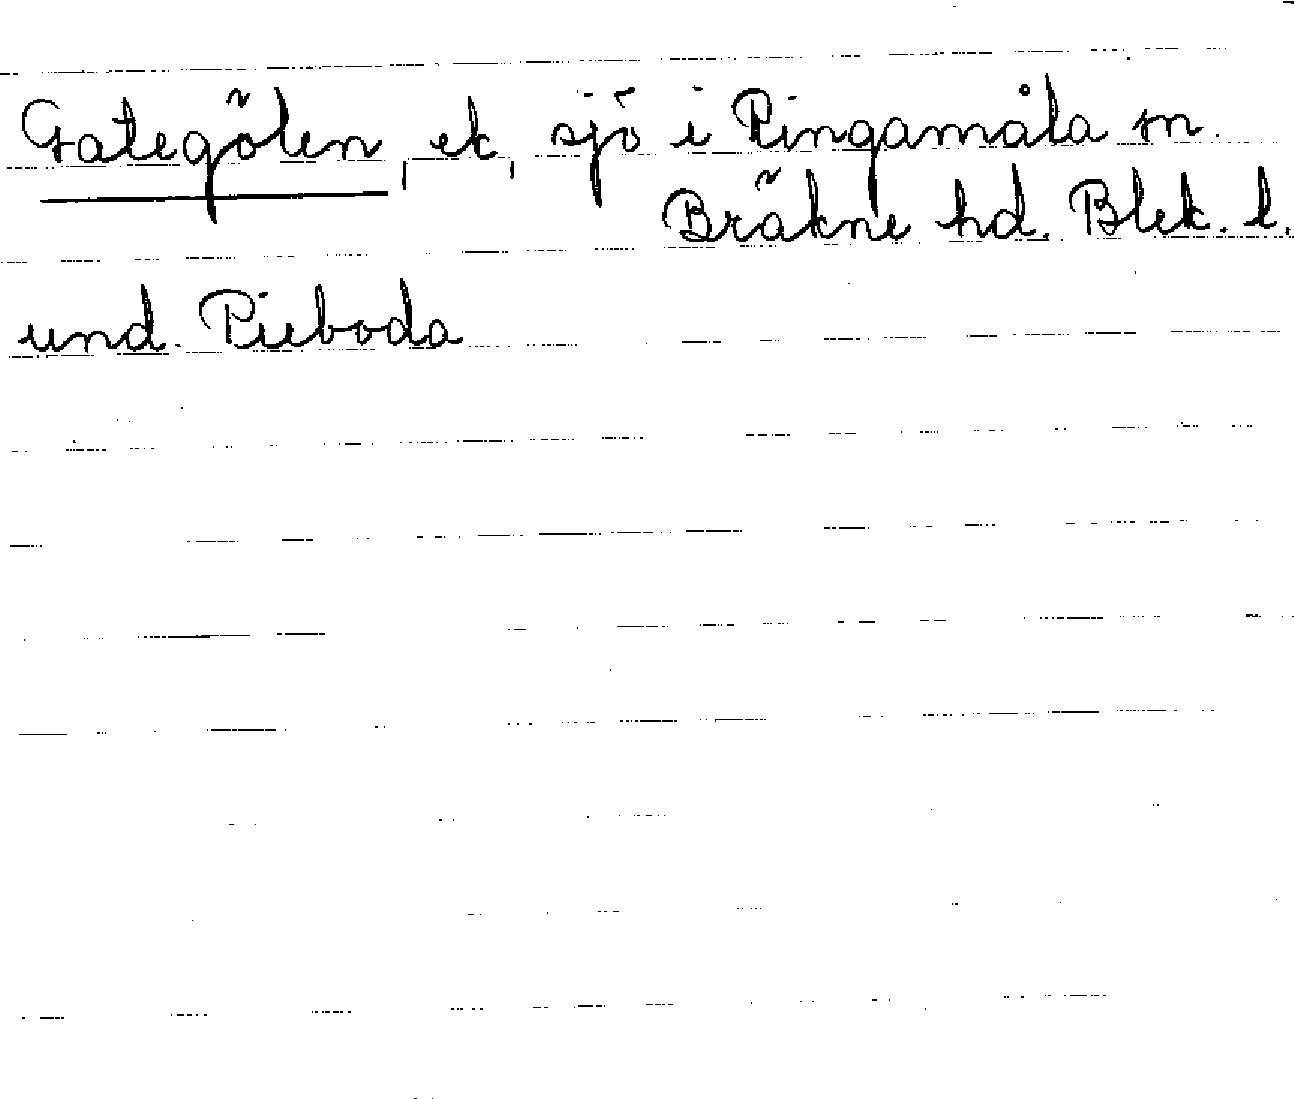 Gategölen, ek, sjö i Ringamåla sn.
Bräkne hd. Blek. l.
und. Pieboda